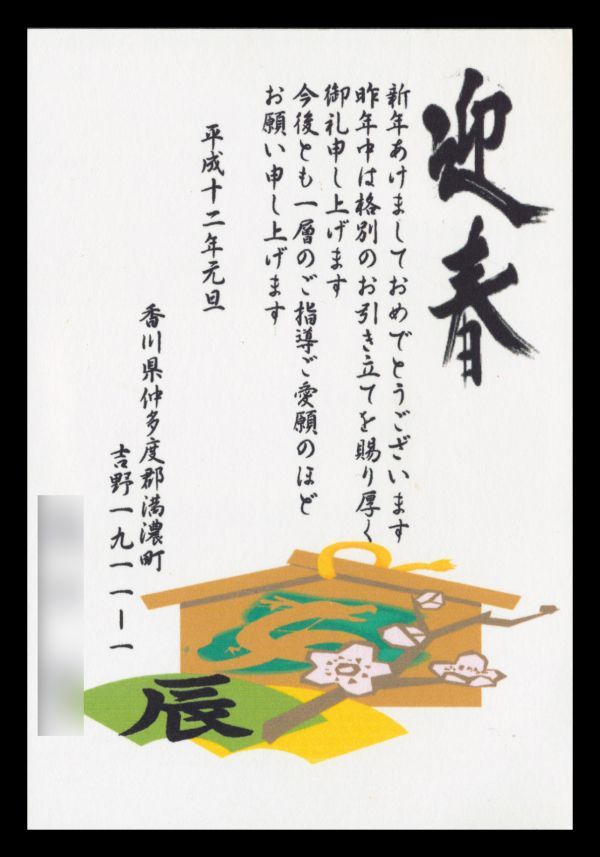 迎春
新年あけましておめでとうございます
昨年中は格別のお引き立てを賜り厚く
御礼申し上げます
今後とも一層のご指導ご愛願のほど
お願い申し上げます
平成十二年元旦
香川県仲多度郡満濃町
吉野一九一一ー一
辰